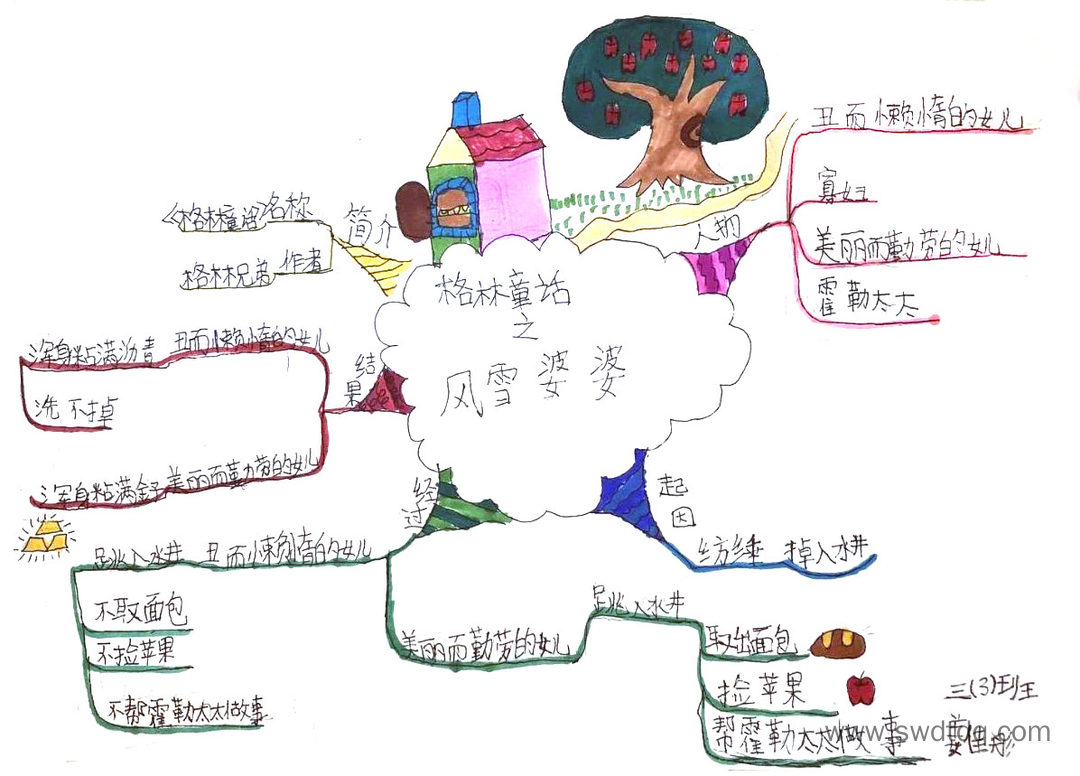 格林童话
之
风雪婆婆
简介
名称
《格林童话》
作者
格林兄弟
人物
丑而懒惰的女儿
寡妇
美丽而勤劳的女儿
霍勒太太
起因
纺锤 掉入水井
经过
美丽而勤劳的女儿
跳入水井
取出面包
捡苹果
帮霍勒太太做事
丑而懒惰的女儿
跳入水井
不取面包
不捡苹果
不帮霍勒太太做事
结果
丑而懒惰的女儿
浑身粘满沥青
洗不掉
美丽而勤劳的女儿
浑身粘满金子
三(3)班
佳彤
www.swdtdq.com